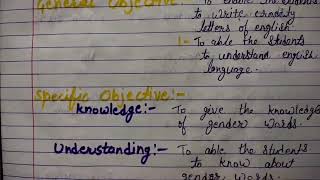 General Objective:- To enable the students
to write
letters of english
1- To able the students
to understand english
language.
Specific Objective:-
Knowledge:- To give the knowledge
of gender words.
Understanding:- To able the students
to know about
gender words.